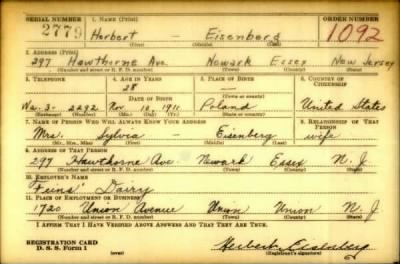 SERIAL NUMBER 1. NAME (Print) ORDER NUMBER
2779 Herbert — Eisenberg 1092
(First) (Middle) (Last)
2. ADDRESS (Print)
297 Hawthorne Ave. Newark Essex New Jersey
(Number and street or R. F. D. number) (Town) (County) (State)
3. TELEPHONE 4. AGE IN YEARS 5. PLACE OF BIRTH 6. COUNTRY OF CITIZENSHIP
28 —
DATE OF BIRTH (Town or county)
Wa. 3- 2292 Nov. 12, 1911 Poland United States
(Exchange) (Number) (Mo.) (Day) (Yr.) (State or country)
7. NAME OF PERSON WHO WILL ALWAYS KNOW YOUR ADDRESS 8. RELATIONSHIP OF THAT PERSON
Mrs. Sylvia — Eisenberg wife
(Mr., Mrs., Miss) (First) (Middle) (Last)
9. ADDRESS OF THAT PERSON
297 Hawthorne Ave. Newark Essex N. J.
(Number and street or R. F. D. number) (Town) (County) (State)
10. EMPLOYER'S NAME
Feins' Dairy
11. PLACE OF EMPLOYMENT OR BUSINESS
1720 Union Avenue Union Union N. J.
(Number and street or R. F. D. number) (Town) (County) (State)
I AFFIRM THAT I HAVE VERIFIED ABOVE ANSWERS AND THAT THEY ARE TRUE.
REGISTRATION CARD
D. S. S. Form 1 (over) Herbert Eisenberg
(Registrant's signature)